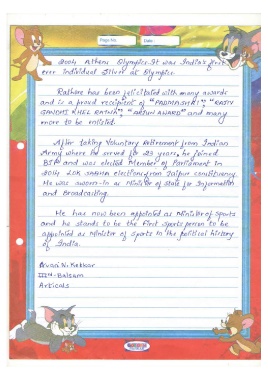 Page No.
Date:
2004 Athens Olympics. It was India's first
ever Individual Silver at Olympic.
Rathore has been felicitated with many awards
and is a proud recipient of "PADMASHRI", "RAJIV
GANDHI KHEL RATNA", "ARJUN AWARD" and many
more to be enlisted.
After taking Voluntary Retirement from Indian
Army where he served for 23 years, he joined
BJP and was elected Member of Parliament in
2014 LOK SABHA elections from Jaipur constituency.
He was sworn-in as Minister of state for Information
and Broadcasting.
He has now been appointed as Minister of Sports
and he stands to be the first sports person to be
appointed as Minister of Sports in the political history
of India.
N. Kekkar
III - Balsam
Articals